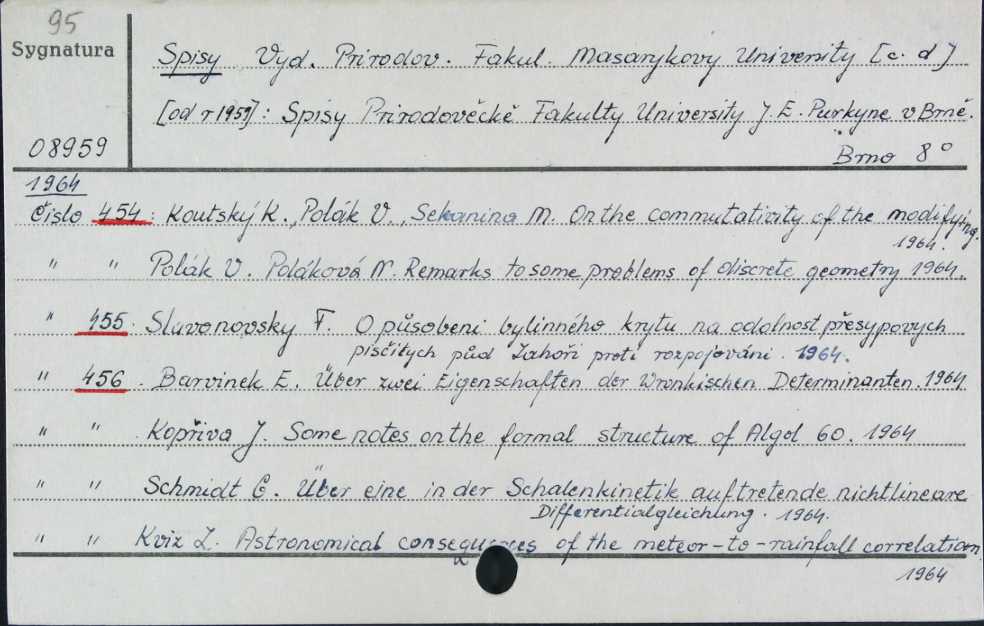 95
Sygnatura
08959
Spisy Vyd. Prirodov. Fakul. Masarykovy University [c. d]
[od r 1959]: Spisy Prirodověcké Fakulty University J. E. Purkyne v Brně.
Brno 8°
1964
Čislo 454: Koutský K., Polák V., Sekanina M. On the commutativity of the modifying.
1964.
" " Polák V. Poláková N. Remarks to some problems of discrete geometry 1964.
" 455. Slavonovsky F. O působeni bylinného krytu na odolnost přesypovych
pisčitych půd Zahoři proti rozpojováni. 1964.
" 456. Barvinek E. Über zwei Eigenschaften der Wronkischen Determinanten. 1964
" " Kopřiva J. Some notes on the formal structure of Algol 60. 1964
" " Schmidt G. Über eine in der Schalenkinetik auftretende nichtlineare
Differentialgleichung. 1964.
" " Kviz Z. Astronomical consequences of the meteor-to-rainfall correlation
1964